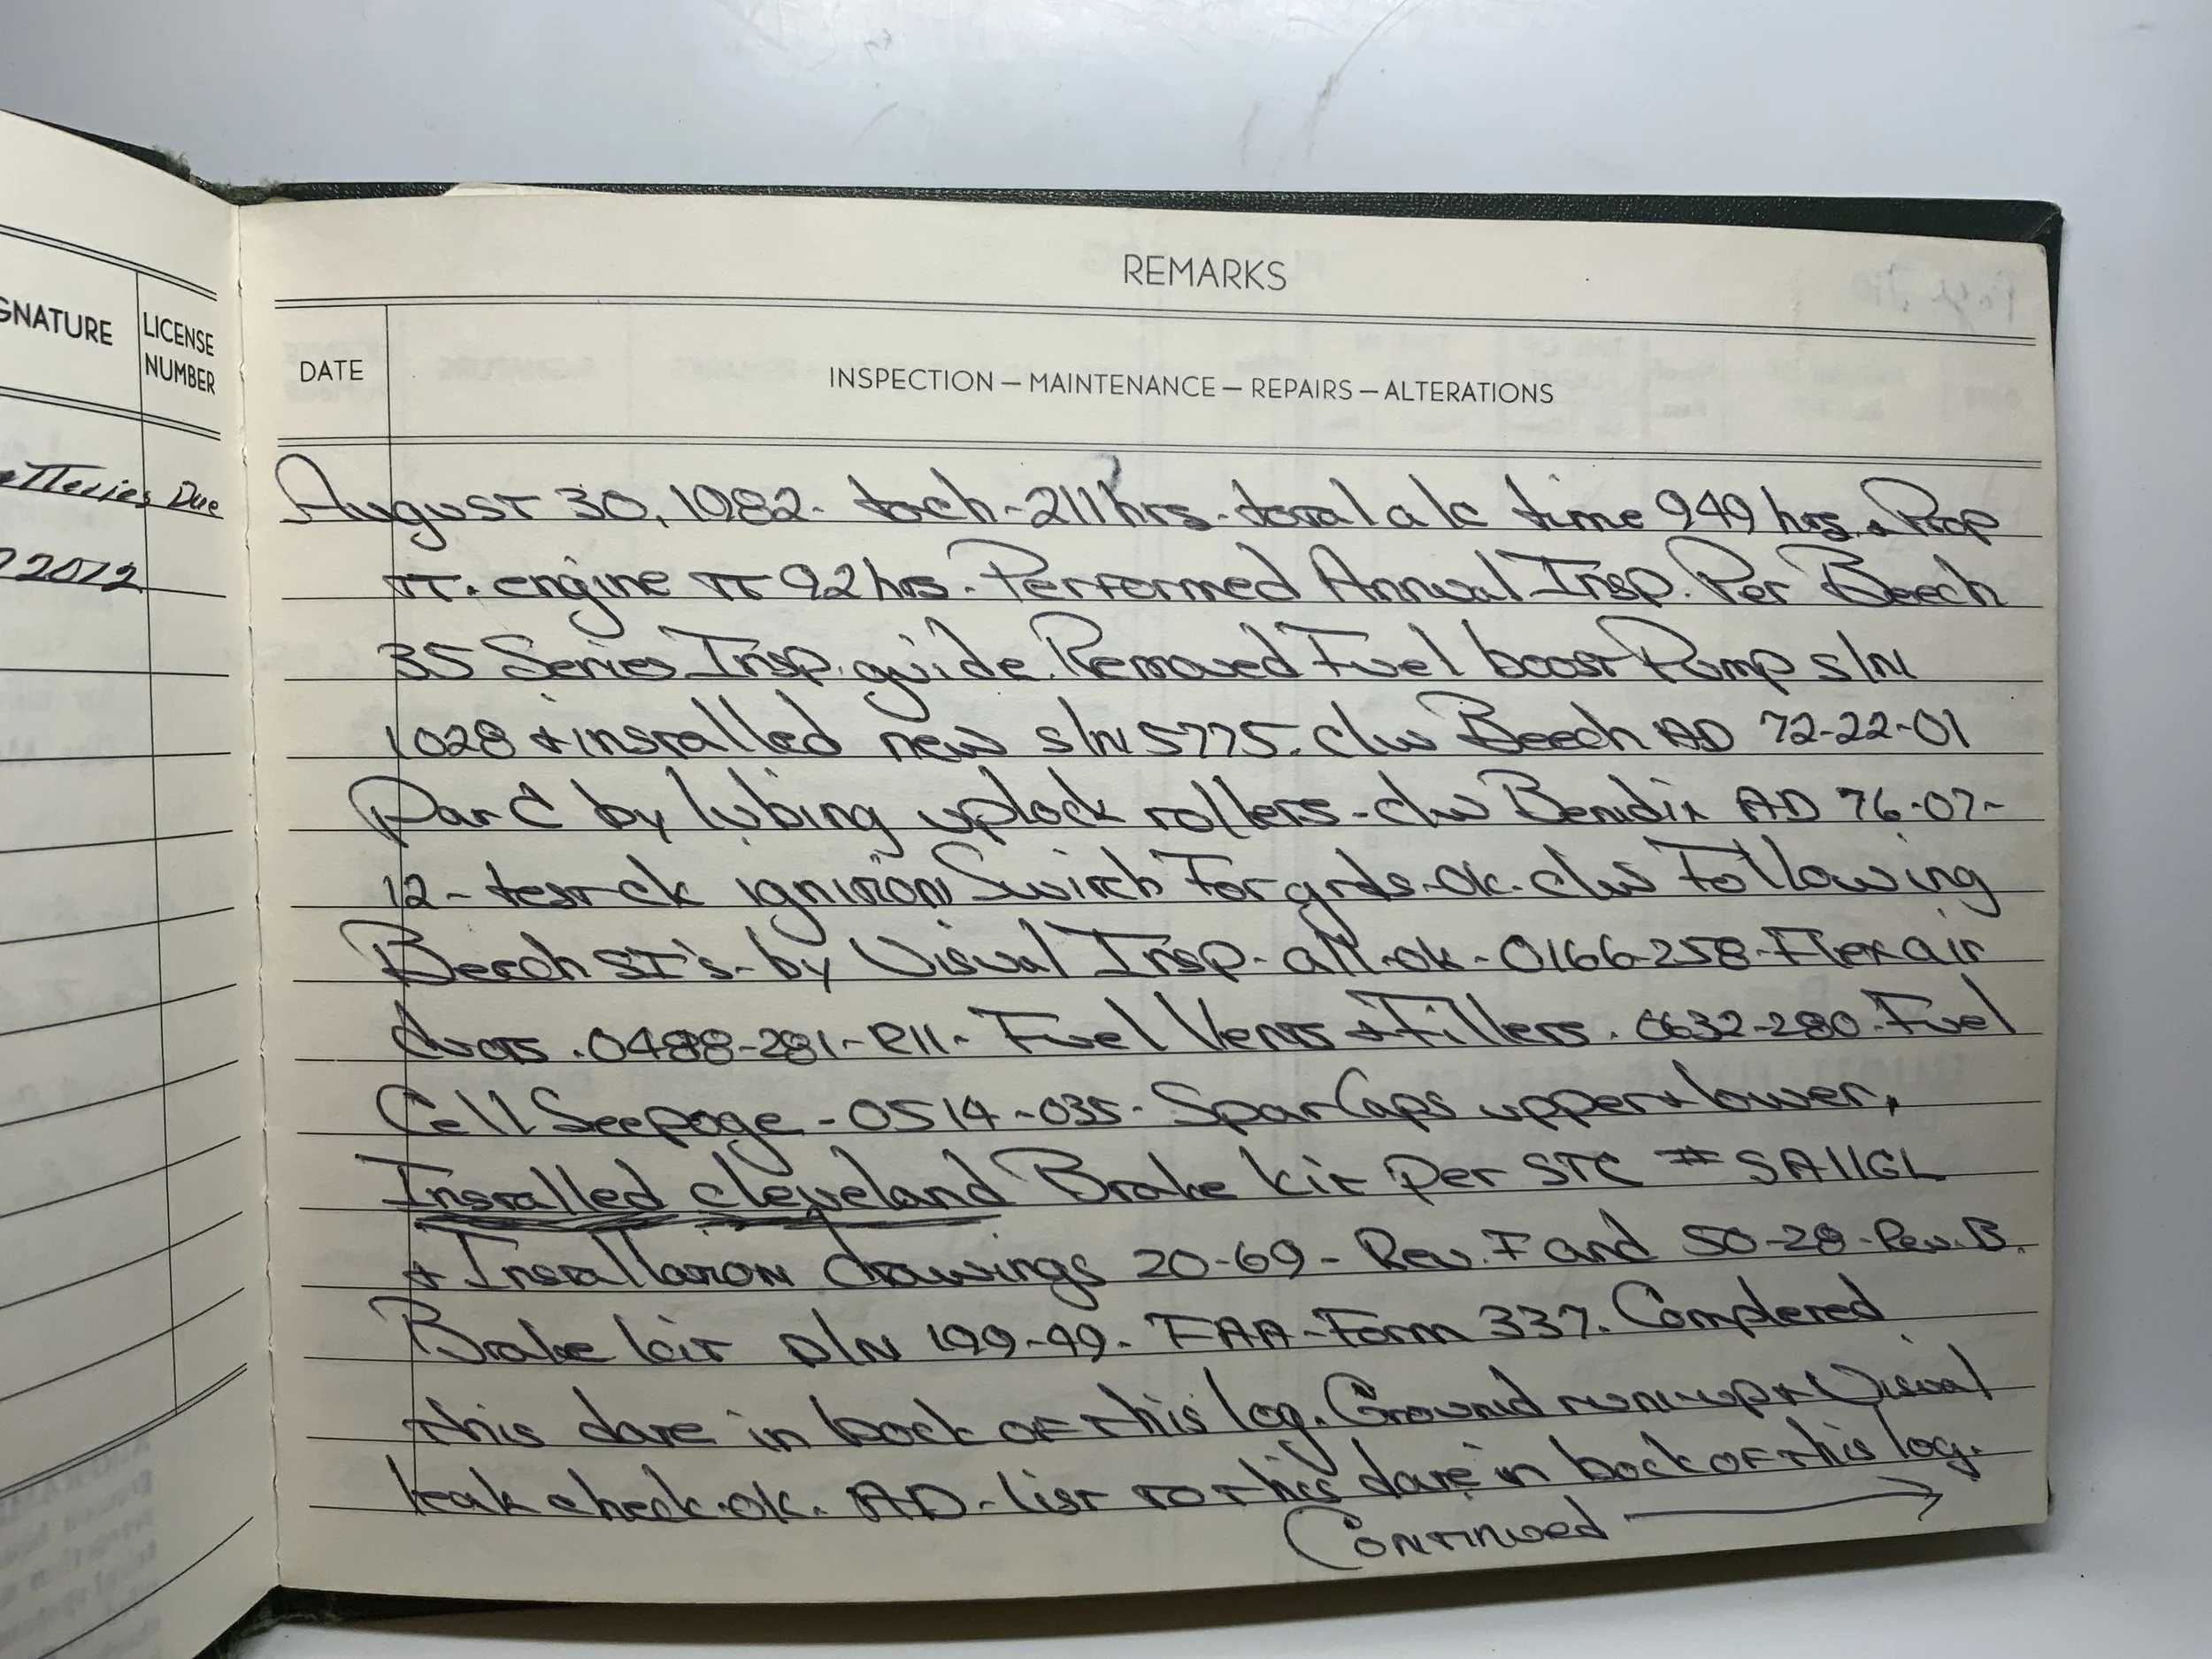 REMARKS
GNATURE
LICENSE
NUMBER
DATE
INSPECTION — MAINTENANCE — REPAIRS — ALTERATIONS
etteries Due
22012
August 30, 1982. tach-211hrs. total a/c time 949 hrs. + Prop
TT. engine TT 92 hrs. Performed Annual Insp. Per Beech
35 Series Insp. guide. Removed Fuel boost Pump s/n
1028 + installed new s/n 5775. c/w Beech AD 72-22-01
Par C by lubing uplock rollers - c/w Bendix AD 76-07-
12 - test ck ignition Switch For grds. ok. c/w Following
Beech SI's - by Visual Insp. all ok - 0166-258 - Flex air
ducts . 0488-281- RII - Fuel Vents + Fillers . 0632-280 . Fuel
Cell Seepage - 0514-035 - Spar Caps upper + lower,
Installed cleveland Brake kit per STC # SA11GL
+ Installation drawings 20-69 - Rev. F and 50-28 - Rev. B.
Brake kit P/N 199-49. FAA - Form 337. Completed
this date in back of this log. Ground run-up + Visual
leak check ok. AD - list to this date in back of this log.
Continued →